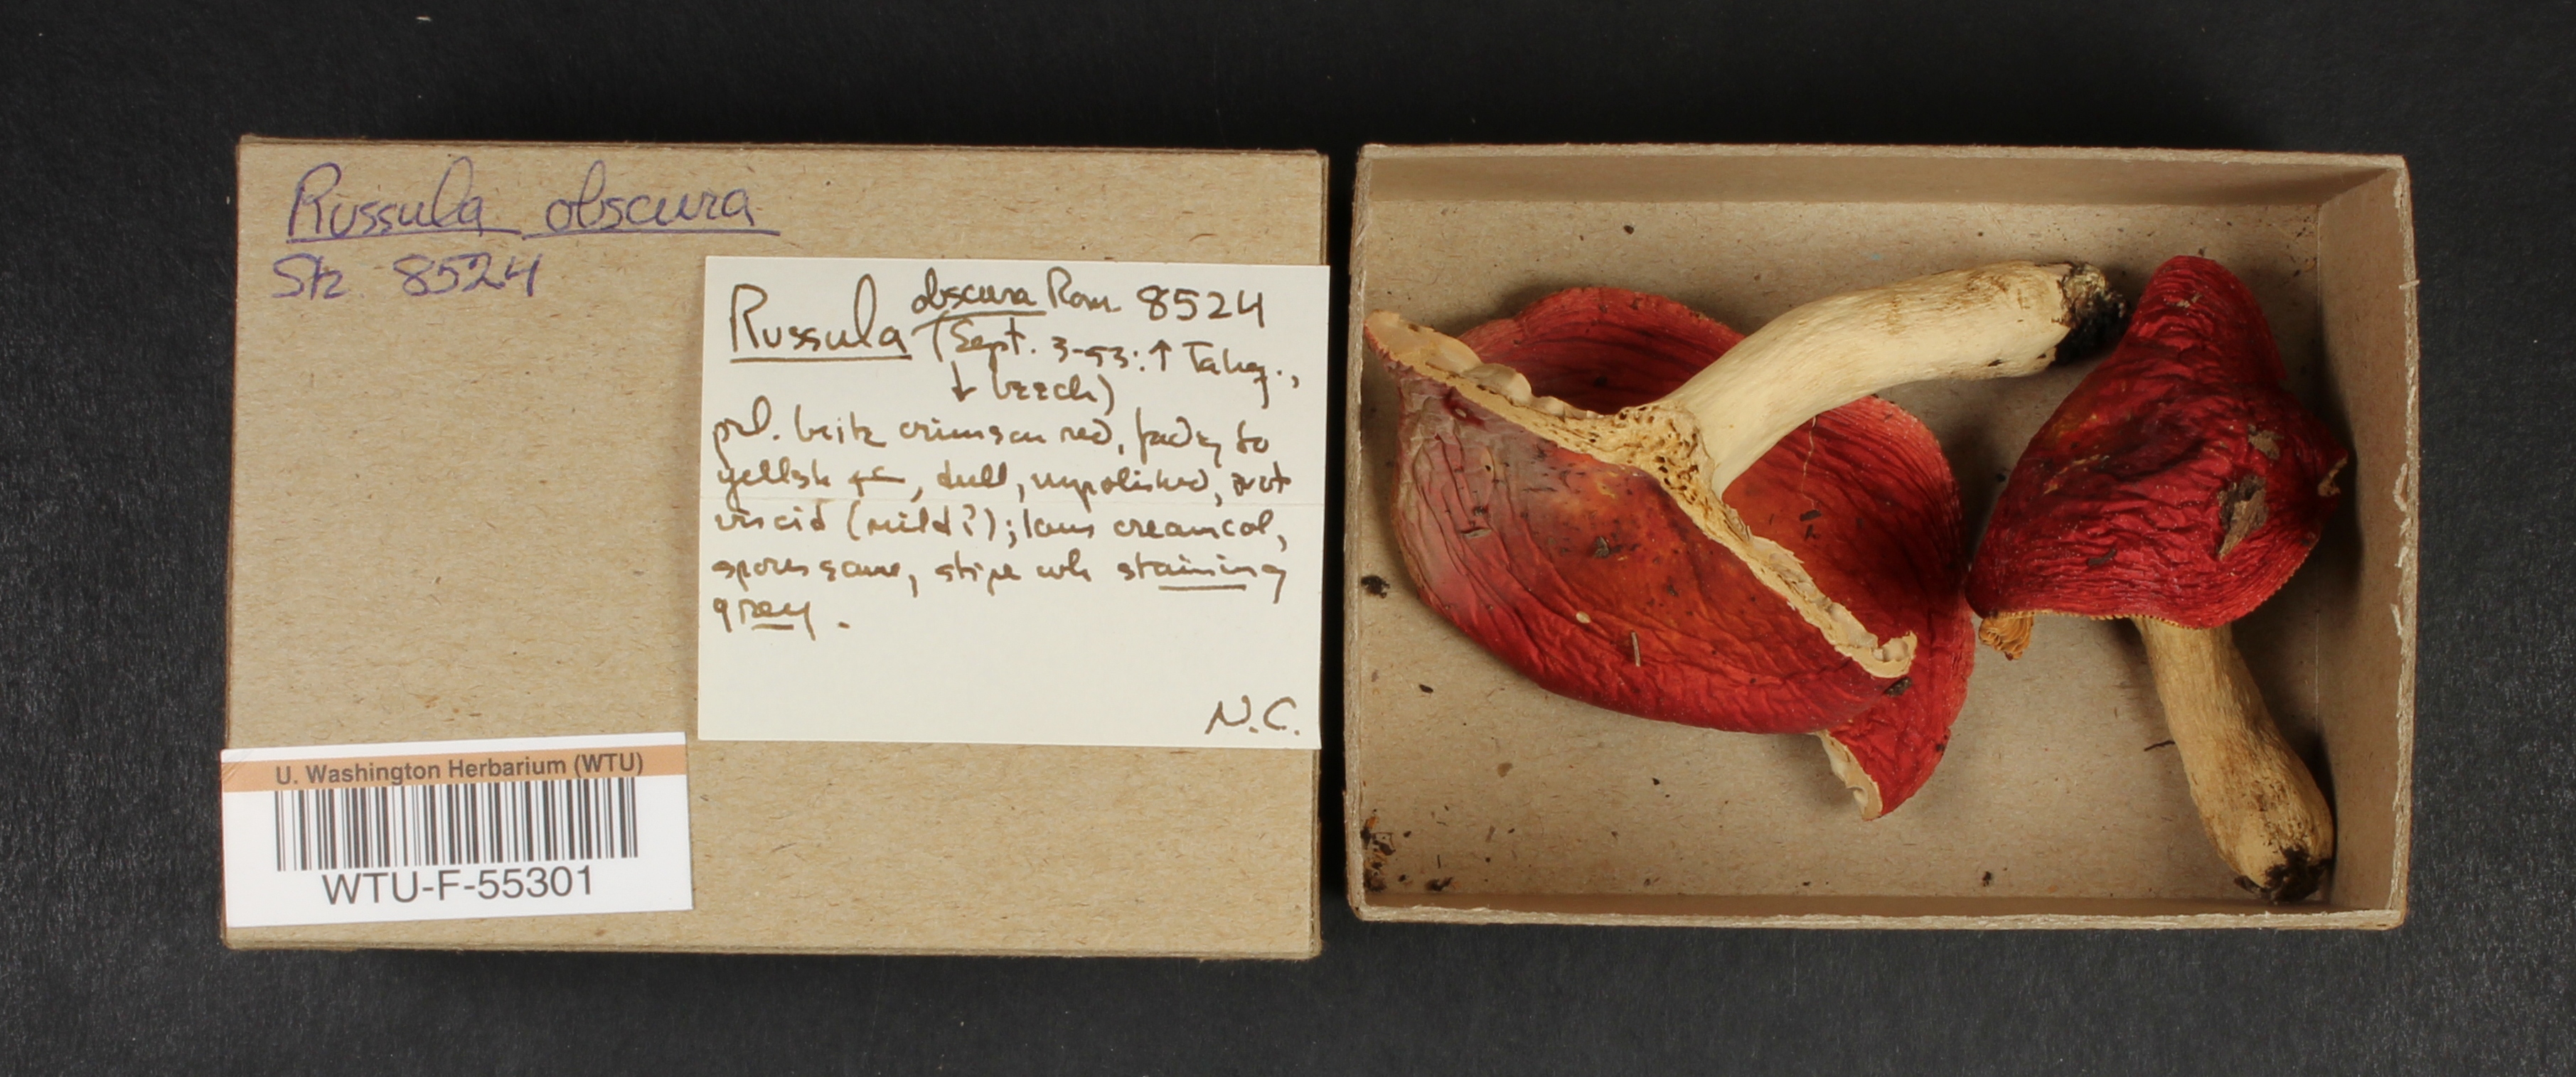 Russula obscura
Stz 8524
Russula obscura Rom. 8524
(Sept. 3-53: ↑ Tahq.,
↓ beech)
pil. brite crimson red, fadg to
yellsh, dull, unpolished, not
viscid (mild?); lams creamcol,
spores same, stipe wh staining
grey.
N.C.
U. Washington Herbarium (WTU)
WTU-F-55301